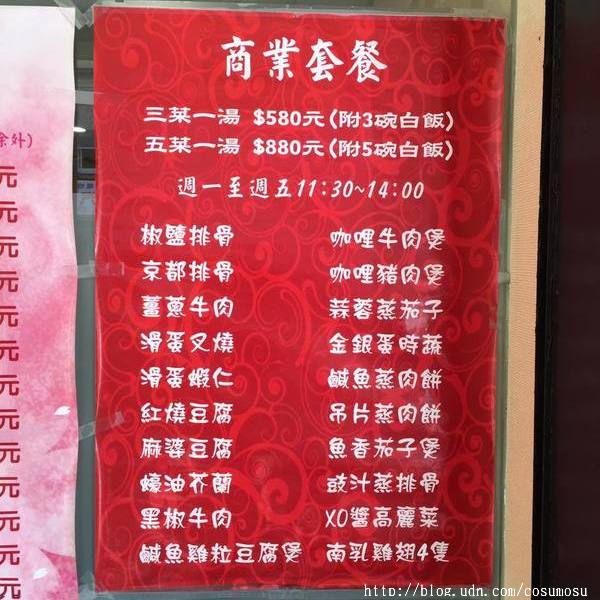 商業套餐
三菜一湯 $580元(附3碗白飯)
五菜一湯 $880元(附5碗白飯)
週一至週五11:30~14:00
椒鹽排骨 咖哩牛肉煲
京都排骨 咖哩豬肉煲
薑蔥牛肉 蒜蓉蒸茄子
滑蛋叉燒 金銀蛋時蔬
滑蛋蝦仁 鹹魚蒸肉餅
紅燒豆腐 吊片蒸肉餅
麻婆豆腐 魚香茄子煲
蠔油芥蘭 豉汁蒸排骨
黑椒牛肉 XO醬高麗菜
鹹魚雞粒豆腐煲 南乳雞翅4隻
余外)
元
元
元
元
元
元
元
元
元
元
元
元
http://blog.udn.com/cosumosu